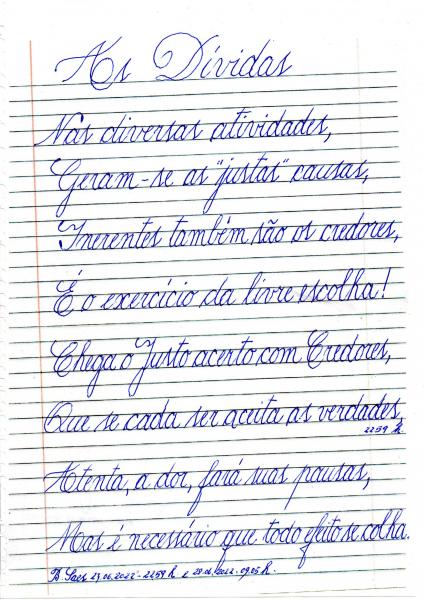 As Dívidas
Nas diversas atividades,
Geram-se as "justas" causas,
Inerentes também são os credores,
É o exercício da livre escolha!
Chega o Justo acerto com Credores,
Que se cada ser aceita as verdades,
2259 h
Atenta, a dor, fará suas pausas,
Mas é necessário que todo efeito se colha.
B. Saes 27.06.2022 - 2259 h e 28.06.2022 - 09.05 h.